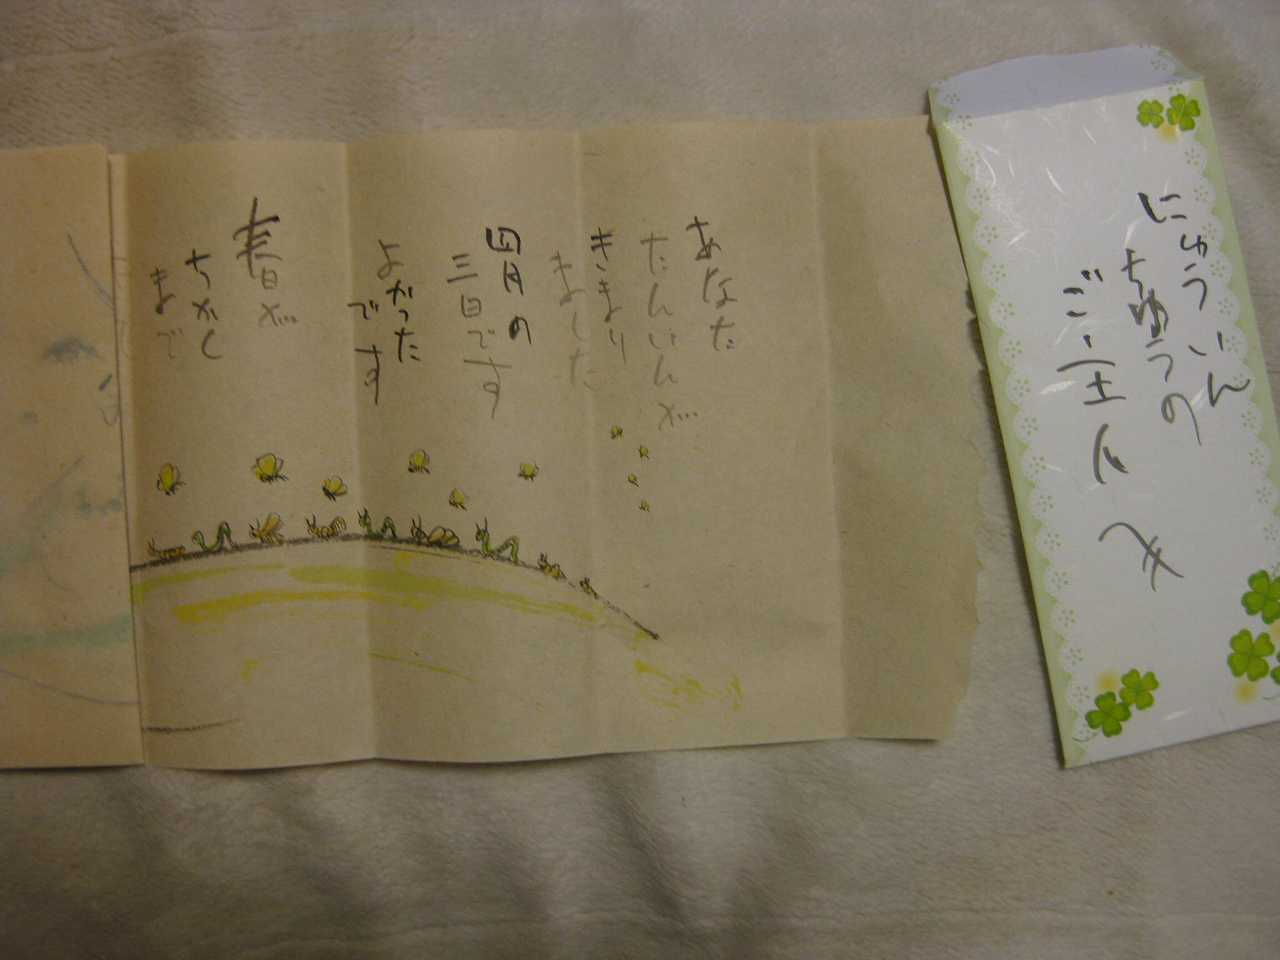 にゅういん
ちゅうの
ご主人へ
あなた
たいいんが
きまり
ました
四月の
三日です
よかった
です
春が
ちかく
まで